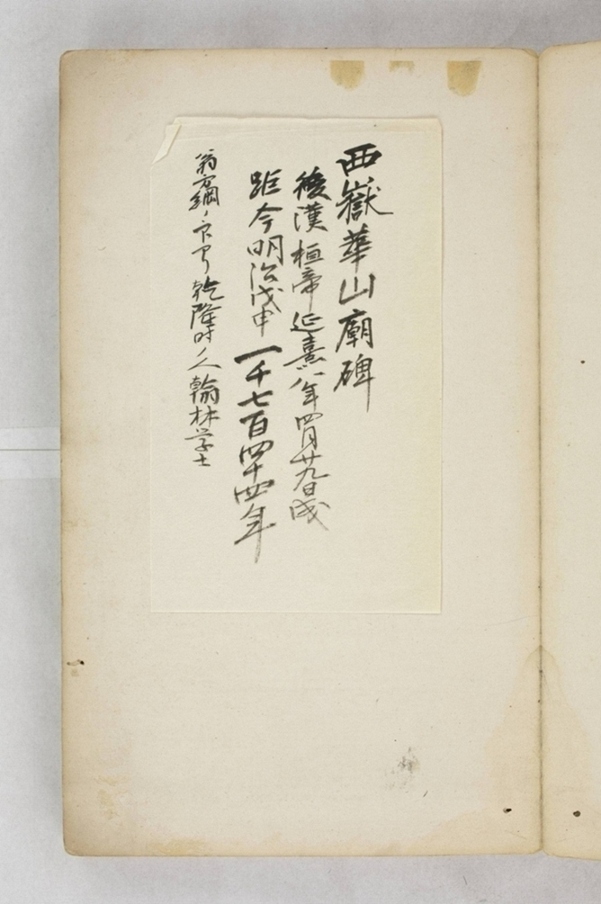 西嶽華山廟碑
後漢桓帝延熹八年四月廿九日成
距今明治戊申一千七百四十四年
翁方綱ノ乾隆时ノ人翰林学士